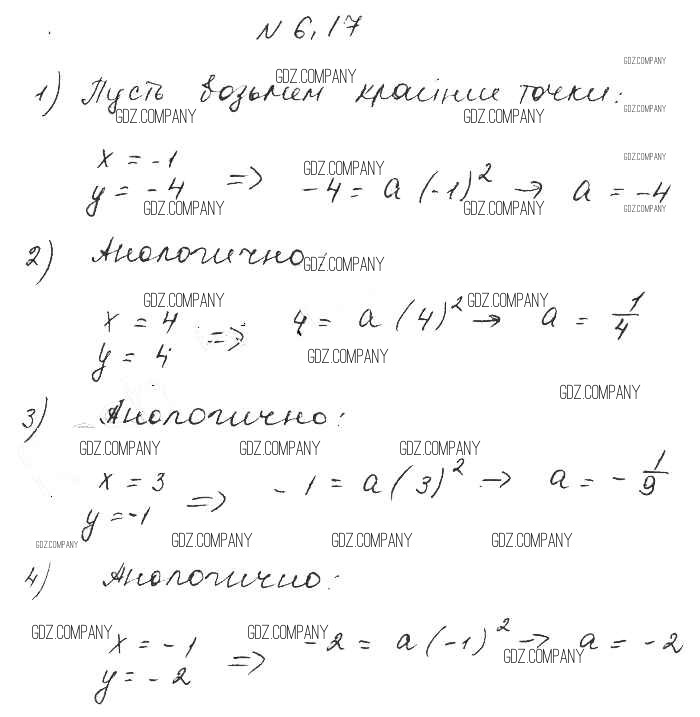 N 6,17
GDZ.COMPANY
GDZ.COMPANY
1) Пусть возьмем крайние точки:
GDZ.COMPANY GDZ.COMPANY GDZ.COMPANY
GDZ.COMPANY
x = -1
GDZ.COMPANY
y = -4 => -4 = a (-1)² → a = -4
GDZ.COMPANY GDZ.COMPANY GDZ.COMPANY
2) Анологично:
GDZ.COMPANY
GDZ.COMPANY GDZ.COMPANY
x = 4
y = 4 => 4 = a (4)² → a = 1/4
GDZ.COMPANY
GDZ.COMPANY
3) Анологично:
GDZ.COMPANY GDZ.COMPANY GDZ.COMPANY
x = 3
y = -1 => -1 = a (3)² → a = - 1/9
GDZ.COMPANY GDZ.COMPANY GDZ.COMPANY GDZ.COMPANY
4) Анологично:
GDZ.COMPANY GDZ.COMPANY
x = -1
y = -2 => -2 = a (-1)² → a = -2
GDZ.COMPANY